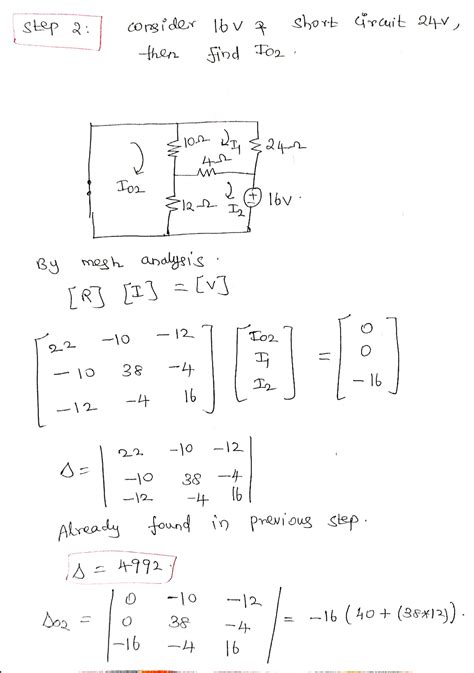 Step 2: consider 16V & short circuit 24V,
then find I02.
10Ω I1 24Ω
4Ω
I02
12Ω I2 16V.
By mesh analysis.
[R] [I] = [V]
22 -10 -12 I02 0
-10 38 -4 I1 = 0
-12 -4 16 I2 -16
Δ = 22 -10 -12
-10 38 -4
-12 -4 16
Already found in previous step.
Δ = 4992.
Δ02 = 0 -10 -12
0 38 -4 = -16 (40 + (38*12)).
-16 -4 16